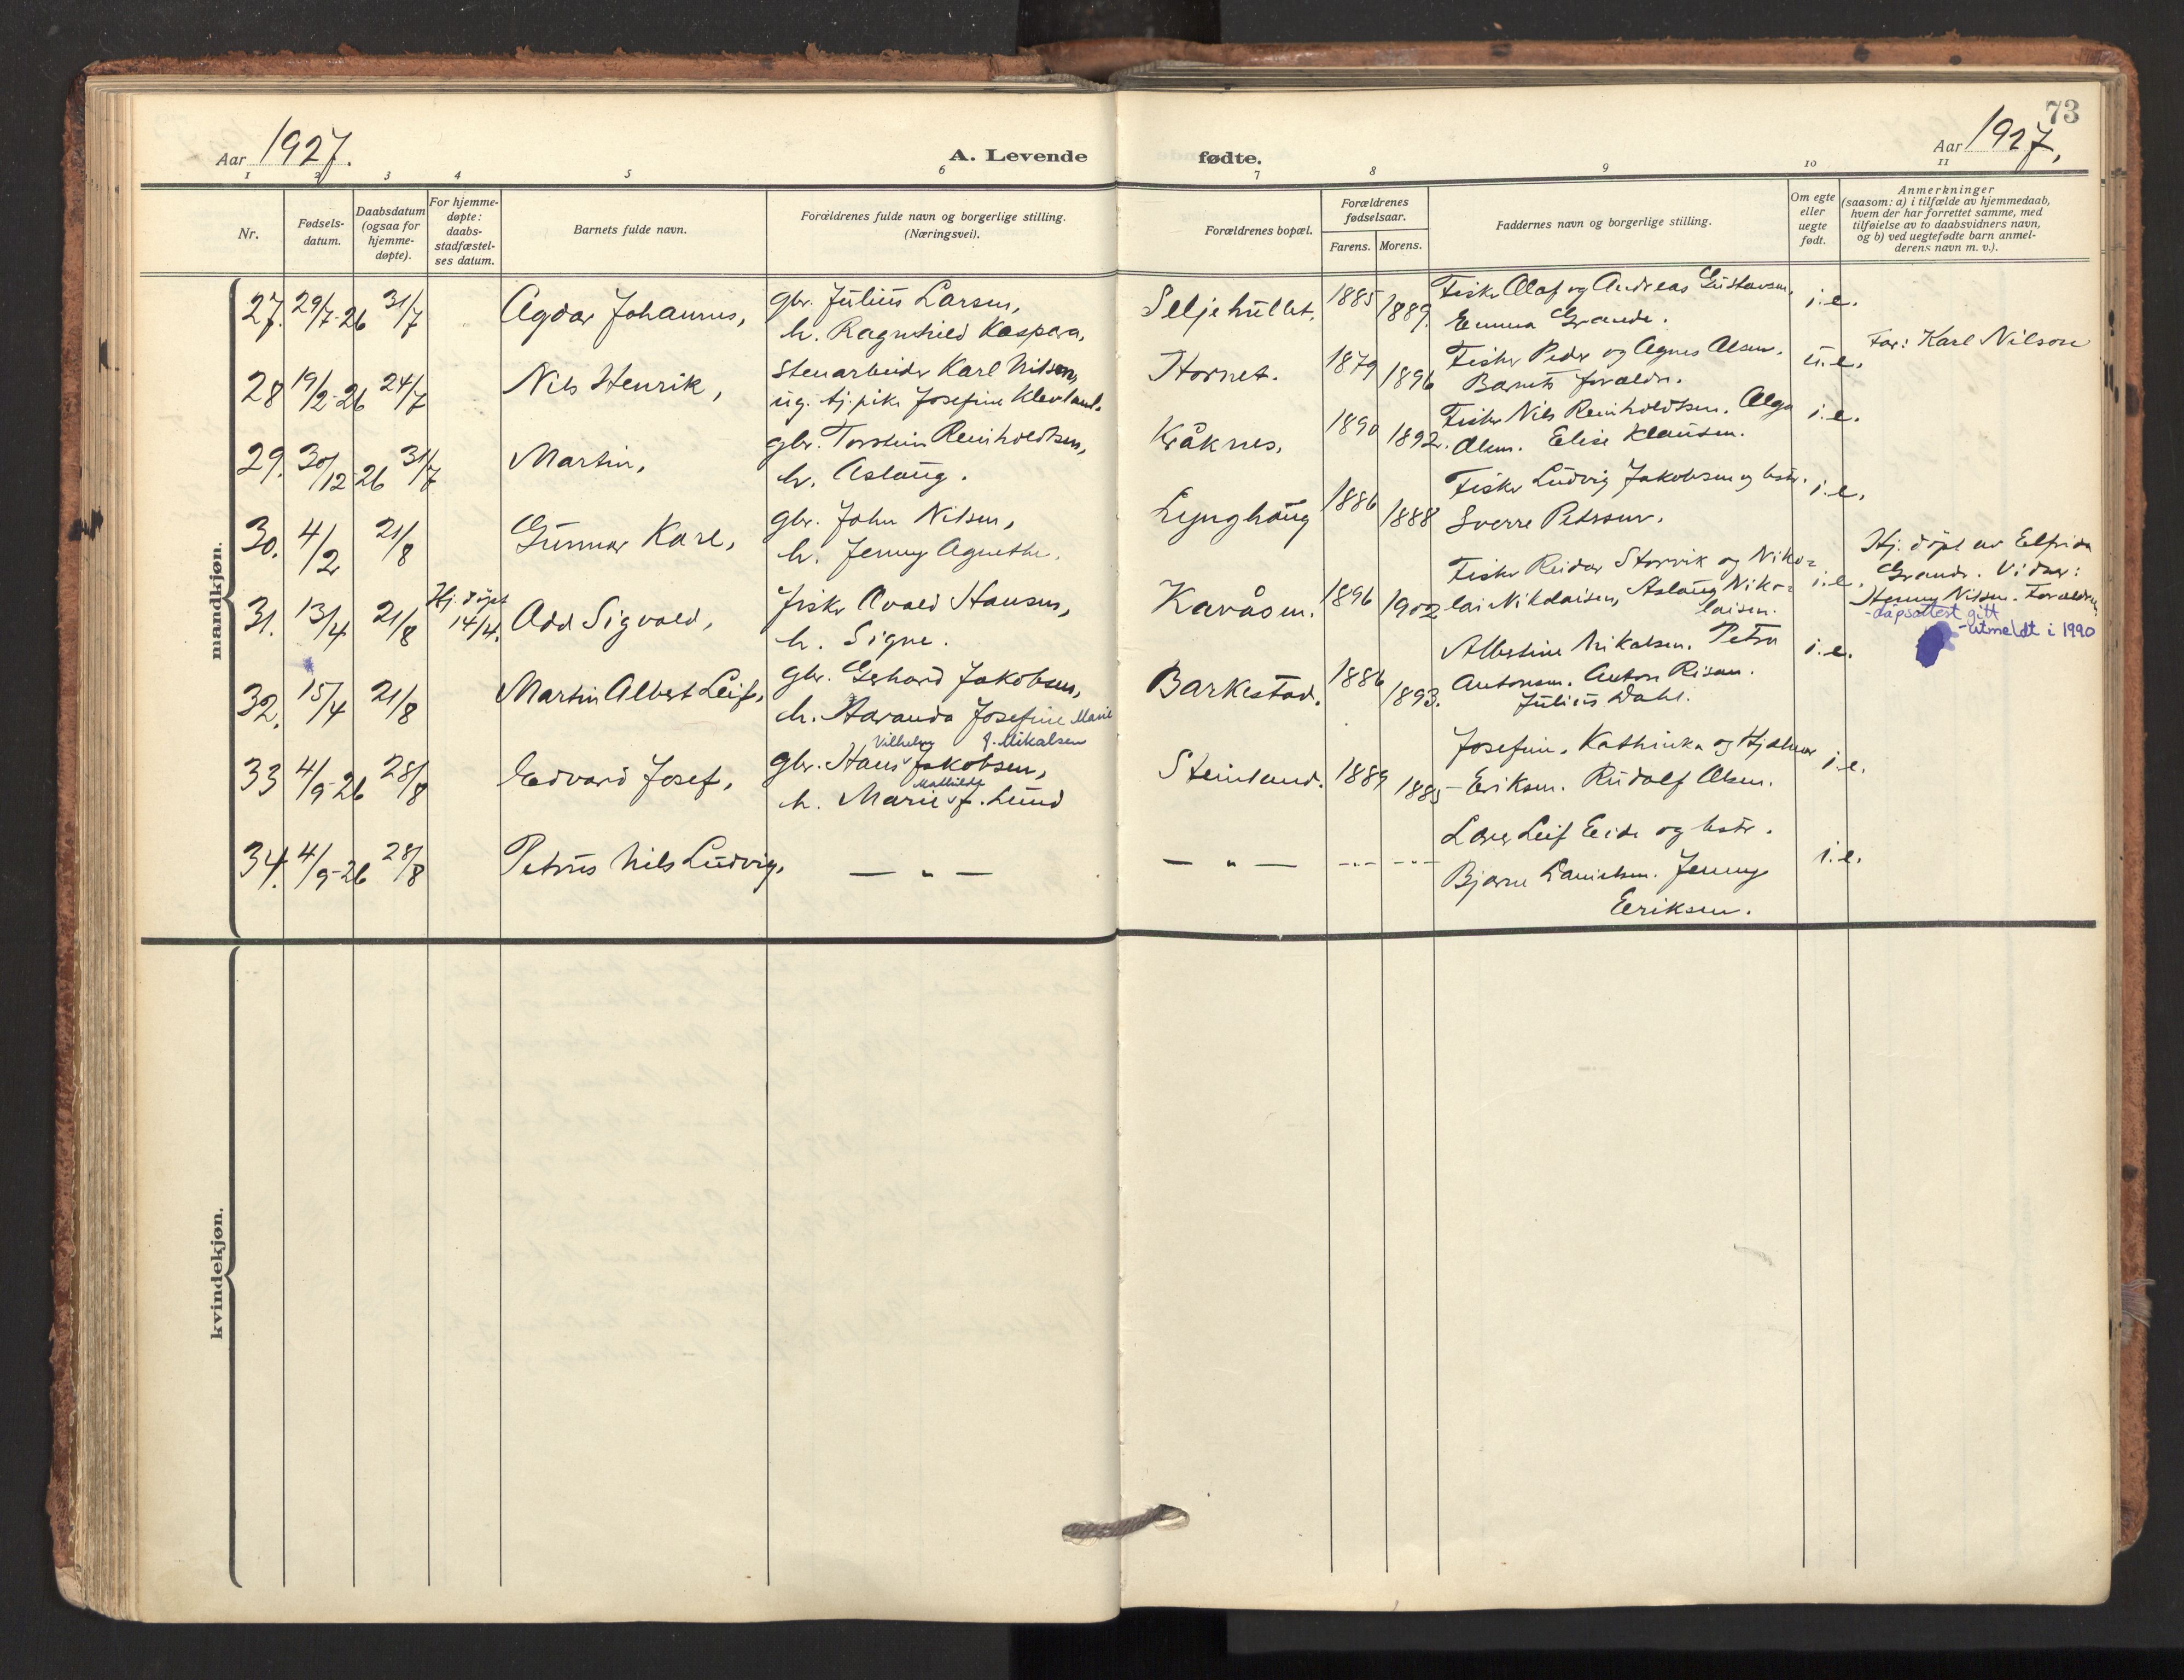 73
Aar 1927.
A. Levende fødte.
Aar 1927.
1 2 3 4 5 6 7 8 9 10 11
Nr.
Fødsels-
datum.
Daabsdatum
(ogsaa for
hjemme-
døpte).
For hjemme-
døpte:
daabs-
stadfæstel-
ses datum.
Barnets fulde navn.
Forældrenes fulde navn og borgerlige stilling.
(Næringsvei).
Forældrenes bopæl.
Forældrenes
fødselsaar.
Farens. Morens.
Faddernes navn og borgerlige stilling.
Om egte
eller
uegte
født.
Anmerkninger
(saasom: a) i tilfælde av hjemmedaab,
hvem der har forrettet samme, med
tilføielse av to daabsvidners navn,
og b) ved uegtefødte barn anmel-
derens navn m. v.).
mandkjøn.
27. 29/7-26 31/7
Agdar Johannes,
gbr. Julius Larsen,
h. Ragnhild Kaspara,
Seljehullet.
1885 1889.
Fisker Olaf og Andreas Gustavsen,
Emma Grande.
i.e.
28 19/2-26 24/7
Nils Henrik,
Stenarbeider Karl Nilsen,
ug. tj.pike Josefine Klevland.
Hornet.
1879 1896
Fisker Peder og Agnes Olsen.
Barnets forældre.
u.e.
Far: Karl Nilson
29. 30/12-26 31/7
Martin,
gbr. Torstein Reinholdtsen,
h. Aslaug.
Kråknes,
1890 1892.
Fisker Nils Reinholdtsen. Olga
Olsen. Elise Klausen.
i.e.
30. 4/2 21/8
Gunnar Karl,
gbr. John Nilsen,
h. Jenny Agnethe.
Lynghaug
1886 1888
Fisker Ludvig Jakobsen og hstr.
Sverre Pettersen.
i.e.
31. 13/4 21/8
Hj. døpt
14/4.
Odd Sigvald,
fisker Hansen,
h. Signe.
Kavåsen.
1896 1902
Fisker Reidar Storvik og Niko=
lai Nikolaisen, Aslaug Niko=
laisen.
i.e.
Hj. døpt av Elfrida
Grande. Vidner:
Henny Nilsen. Forældrene
- dåpsattest gitt
- utmeldt i 1990
32. 15/4 21/8
Martin Albert Leif,
gbr. Gerhard Jakobsen,
h. Haranda Josefine Marie
J. Mikalsen
Barkestad.
1886 1893.
Albertine Mikalsen. Petra
Antonsen. Anton Risan.
Julius Dahl.
i.e.
33 4/9-26 28/8
Edvard Josef,
Vilhelm
gbr. Hans Jakobsen,
Mathilde
h. Marie J. Lund
Steinland.
1889 1885
Josefine, Kathinka og Hjalmar
Eriksen. Rudolf Olsen.
i.e.
34. 4/9-26 28/8
Petrus Nils Ludvig.
— " —
— " —
-"- -"-
Lærer Leif Eide og hstr.
Bjarne Danielsen. Jenny
Eriksen.
i.e.
kvindekjøn.